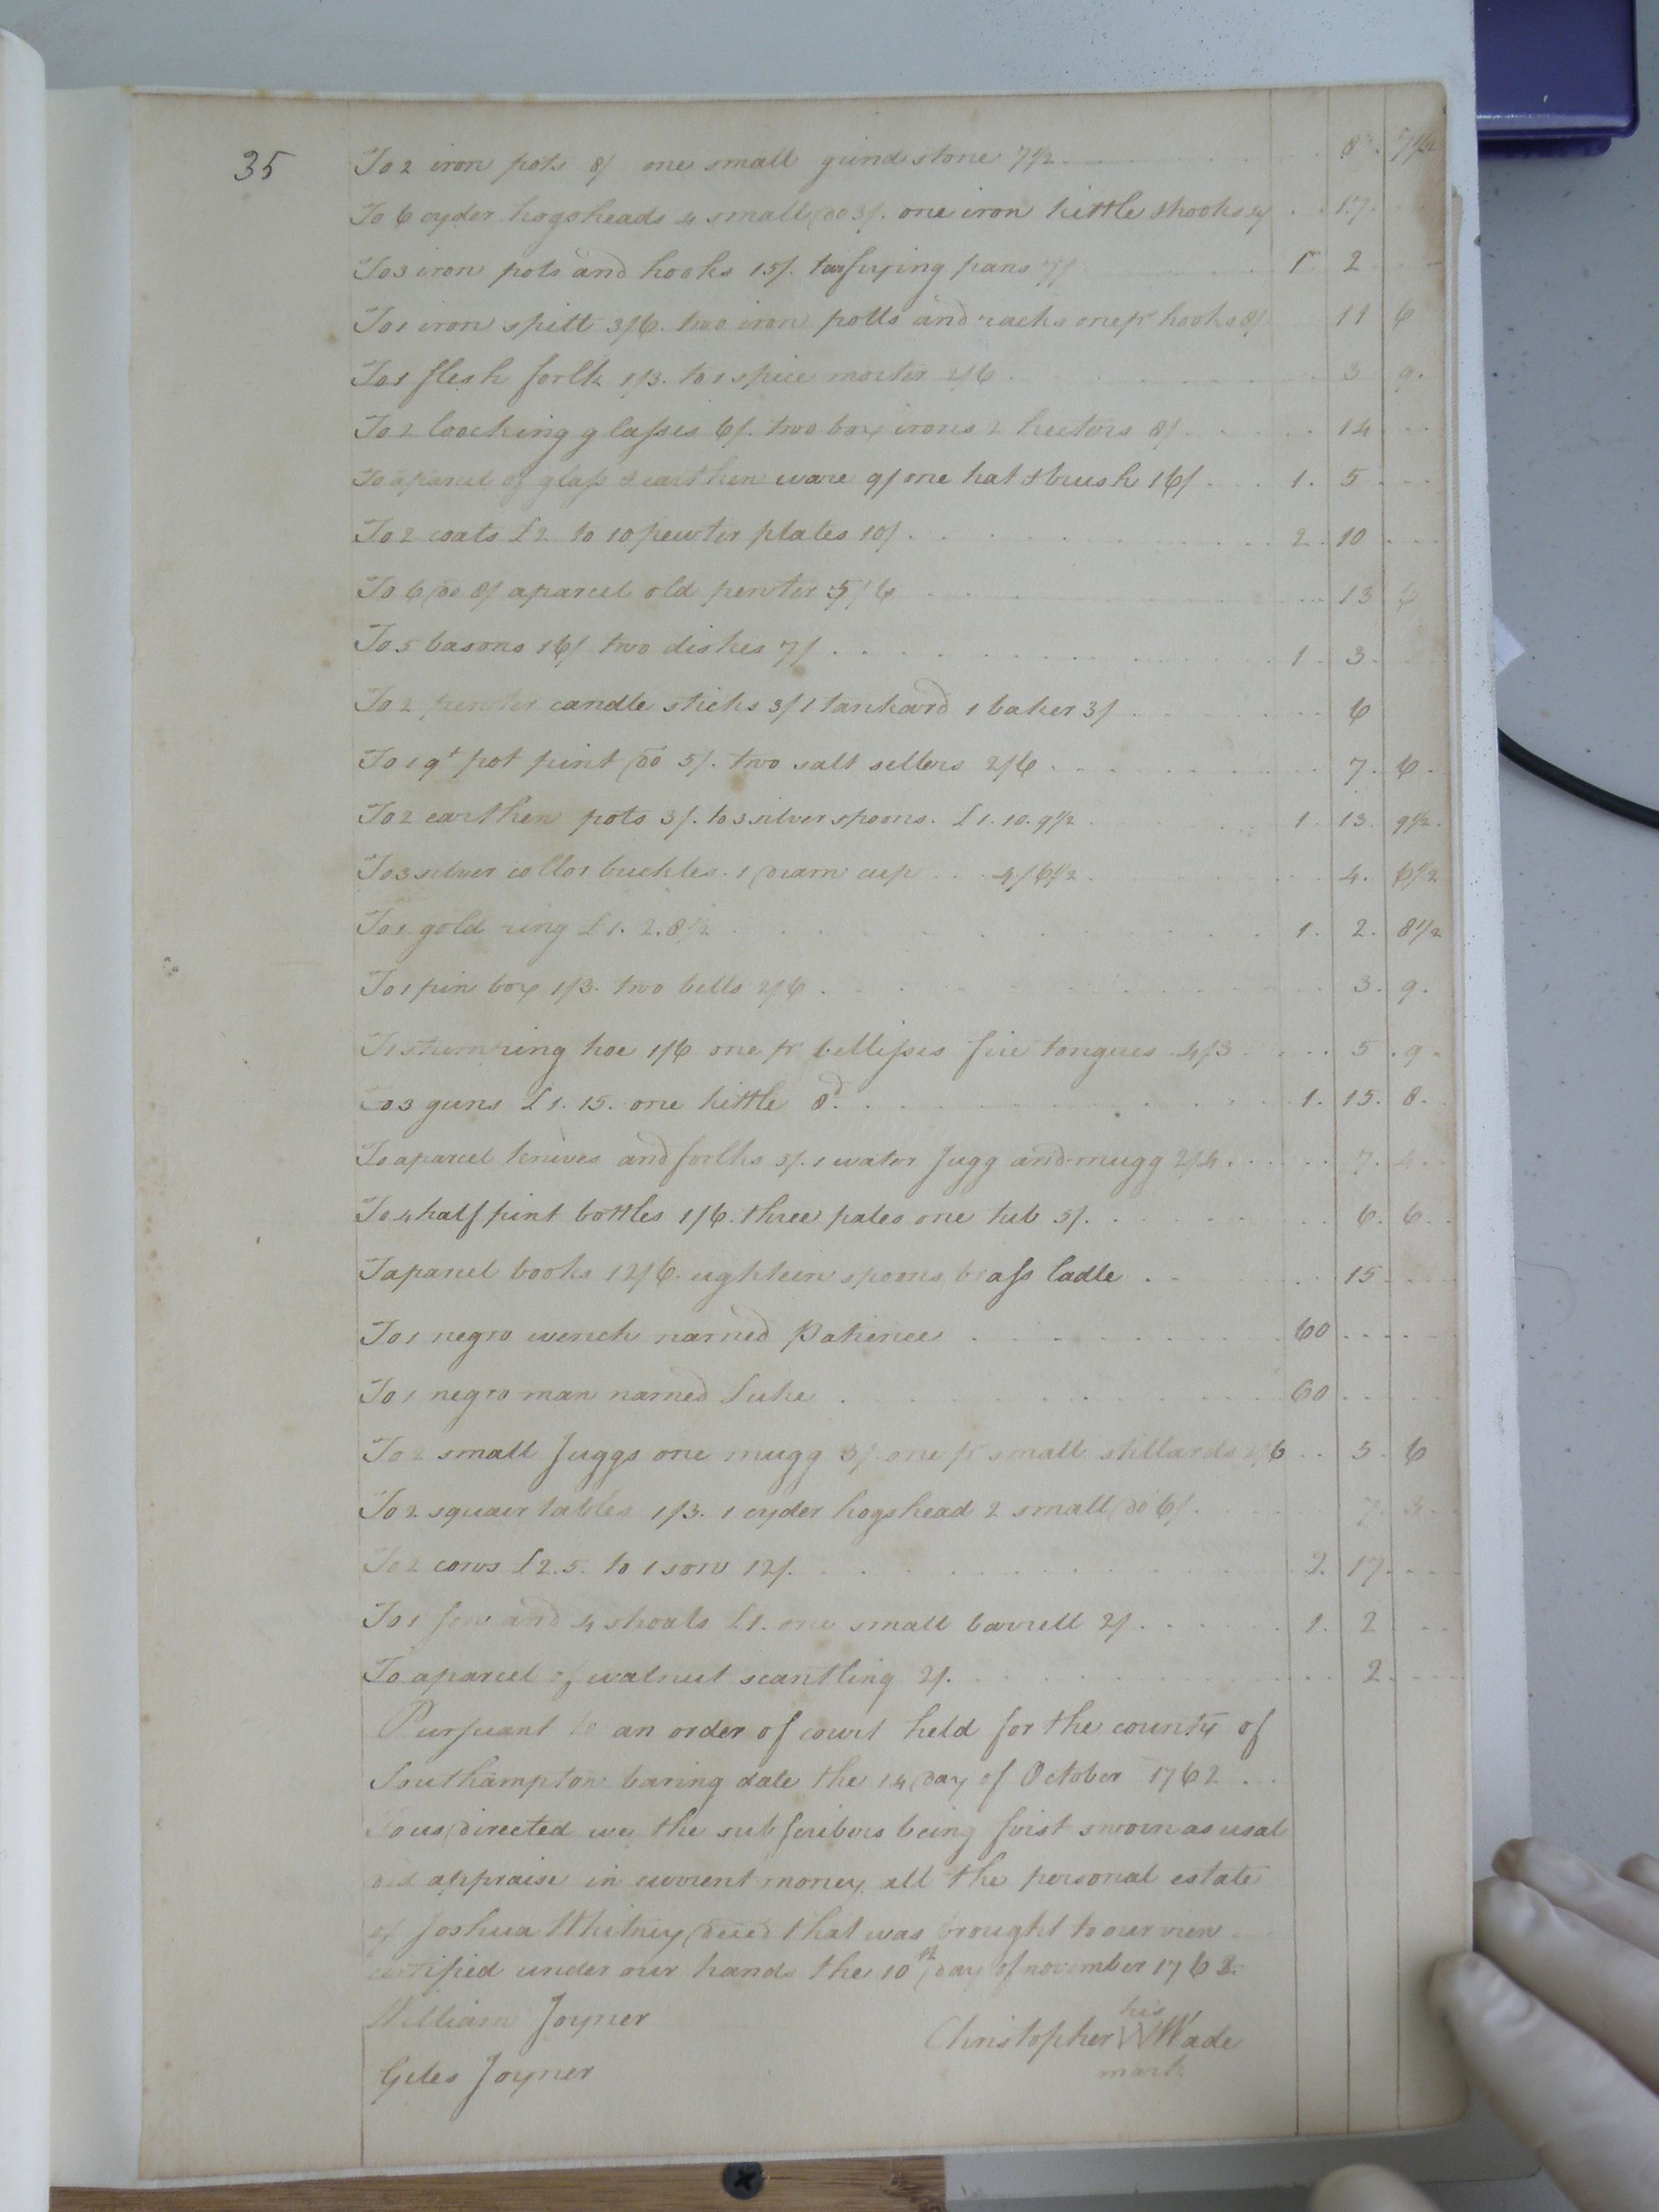 35
To 2 iron pots 8/ one small grindstone 7½ 8. 7½
To 6 cyder hogsheads 4 small do 3/. one iron kittle & hooks 4/ 17.
To 3 iron pots and hooks 15/. two frying pans 7/ 1 2
To 1 iron spitt 3/6. two iron potts and racks one pr hooks 8/ 11 6
To 1 flesh forlk 1/3. to 1 spice morter 2/6 3 9.
To 2 loocking glasses 6/. two box irons 2 heetors 8/ 14
To aparcel of glass & earthen ware 9/ one hat & brush 16/ 1. 5
To 2 coats £2 to 10 pewter plates 10/ 2. 10
To 6 do 8/ aparcel old pewter 5/6 13 6
To 5 basons 16/ two dishes 7/ 1. 3.
To 2 pewter candle sticks 3/ 1 tankard 1 baker 3/ 6
To 1 qt pot pint do 5/. two salt sellers 2/6 7. 6.
To 2 earthen pots 3/. to 3 silver spoons. £1.10.9½ 1. 13. 9½.
To 3 silver collor buckles. 1 dram cup 4/6½ 4. 6½
To 1 gold ring £1.2.8½ 1. 2. 8½
To 1 pin box 1/3. two bells 2/6 3. 9.
hoe 1/6 one pr bellisses fire tongues 4/3 5. 9.
To 3 guns £1.15. one kittle 8d. 1. 15. 8.
To aparcel knives and forlks 5/. 1 water Jugg and mugg 2/4. 7. 4.
To 4 half pint bottles 1/6. three pales one tub 5/. 6. 6.
Taparcel books 12/6. eighteen spoons brass ladle 15
To 1 negro wench named Patience 60
To 1 negro man named Luke 60
To 2 small Juggs one mugg 3/. one pr small stillards 2/6 5. 6
To 2 squair tables 1/3. 1 cyder hogshead 2 small do 6/. 7. 3.
To 2 cows £2.5. to 1 sow 12/. 2. 17.
To 1 sow and 4 shoats £1. one small barrell 2/. 1. 2
To aparcel of walnut scantling 2/. 2.
Pursuant to an order of court held for the county of
Southampton baring date the 14 day of October 1762
To us directed we the subscribers being first sworn as usal
did appraise in current money all the personal estate
of Joshua Whitney decd that was brought to our view
certified under our hands the 10th day of november 1762.
William Joyner
his
Christopher W Wade
mark
Giles Joyner